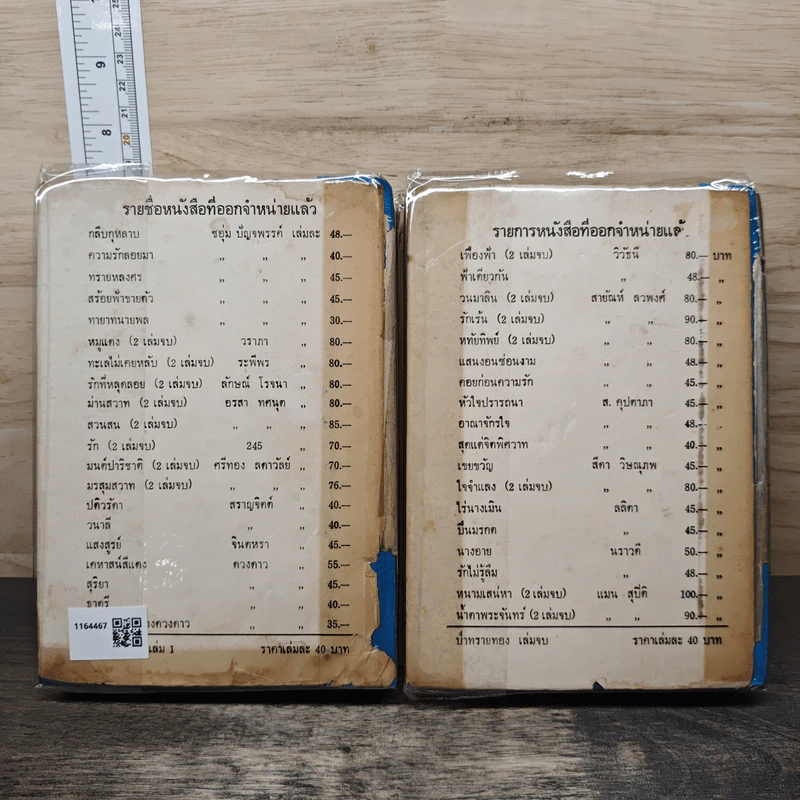 9
8
25
24
23
22
21
20
19
รายชื่อหนังสือที่ออกจำหน่ายแล้ว
กลีบกุหลาบ ชอุ่ม ปัญจพรรค์ เล่มละ 48.—
ความรักลอยมา „ „ „ 40.—
ทรายหลงศร „ „ „ 45.—
สร้อยฟ้าขายตัว „ „ „ 45.—
ทายาทนายพล „ „ „ 30.—
หมูแดง (2 เล่มจบ) วราภา „ 80.—
ทะเลไม่เคยหลับ (2 เล่มจบ) ระพีพร „ 80.—
รักที่หลุดลอย (2 เล่มจบ) ลักษณ์ โรจนา „ 80.—
ม่านสวาท (2 เล่มจบ) อรสา ทศนุต „ 80.—
สวนสน (2 เล่มจบ) „ „ „ 85.—
รัก (2 เล่มจบ) 245 „ 70.—
มนต์ปาริชาติ (2 เล่มจบ) ศรีทอง ลดาวัลย์ „ 70.—
มรสุมสวาท (2 เล่มจบ) „ „ „ 76.—
ปดิวรัดา สราญจิตต์ „ 40.—
วนาลี „ „ 40.—
แสงสูรย์ จินตหรา „ 45.—
เคหาสน์สีแดง ดวงดาว „ 55.—
สุริยา „ „ 45.—
ธาตรี „ „ 40.—
ดวงดาว „ 35.—
1164467
เล่ม 1 ราคาเล่มละ 40 บาท
รายการหนังสือที่ออกจำหน่ายแล้ว
เฟื่องฟ้า (2 เล่มจบ) วิวัธนี 80.— บาท
ฟ้าเดียวกัน „ 48.— „
วนมาลิน (2 เล่มจบ) สายัณห์ ลวพงศ์ 80.— „
รักเร้น (2 เล่มจบ) „ „ 90.— „
หทัยทิพย์ (2 เล่มจบ) „ „ 80.— „
แสนงอนซ่อนงาม „ „ 48.— „
คอยก่อนความรัก „ „ 45.— „
หัวใจปรารถนา ส. คุปตาภา 45.— „
อาณาจักรใจ „ „ 48.— „
สุดแต่จิตพิศวาท „ „ 40.— „
เขยขวัญ สีดา วิษณุภพ 45.— „
ใจจำแลง (2 เล่มจบ) „ „ 80.— „
ไร่นางเมิน ลลิตา 45.— „
ปืนมรกต „ 45.— „
นางอาย นราวดี 50.— „
รักไม่รู้ลืม „ 48.— „
หนามเสน่หา (2 เล่มจบ) แมน สุปิติ 100.— „
น้ำตาพระจันทร์ (2 เล่มจบ) „ „ 90.— „
ป่าทรายทอง เล่มจบ ราคาเล่มละ 40 บาท